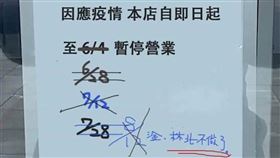 因應疫情 本店自即日起
至 6/4 暫停營業
6/28
7/12
7/28
8/12 淦、林北不做了